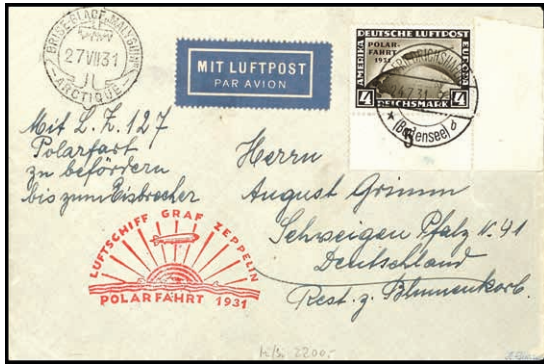 BRISE-GLACE-MALYGUINE
27 VII 31
ARCTIQUE
MIT LUFTPOST
PAR AVION
DEUTSCHE LUFTPOST
AMERIKA
EUROPA
POLAR-
FAHRT
1931
4 REICHSMARK 4
FRIEDRICHSHAFEN
24.7.31
(Bodensee) b
Mit L. Z. 127
Polarfart
zu befördern
bis zum Eisbrecher
Herrn
August Grimm
Schweigen Pfalz N. 41
Deutschland
Rest. z. Blumenkorb.
LUFTSCHIFF GRAF ZEPPELIN
POLARFAHRT 1931
2200,-